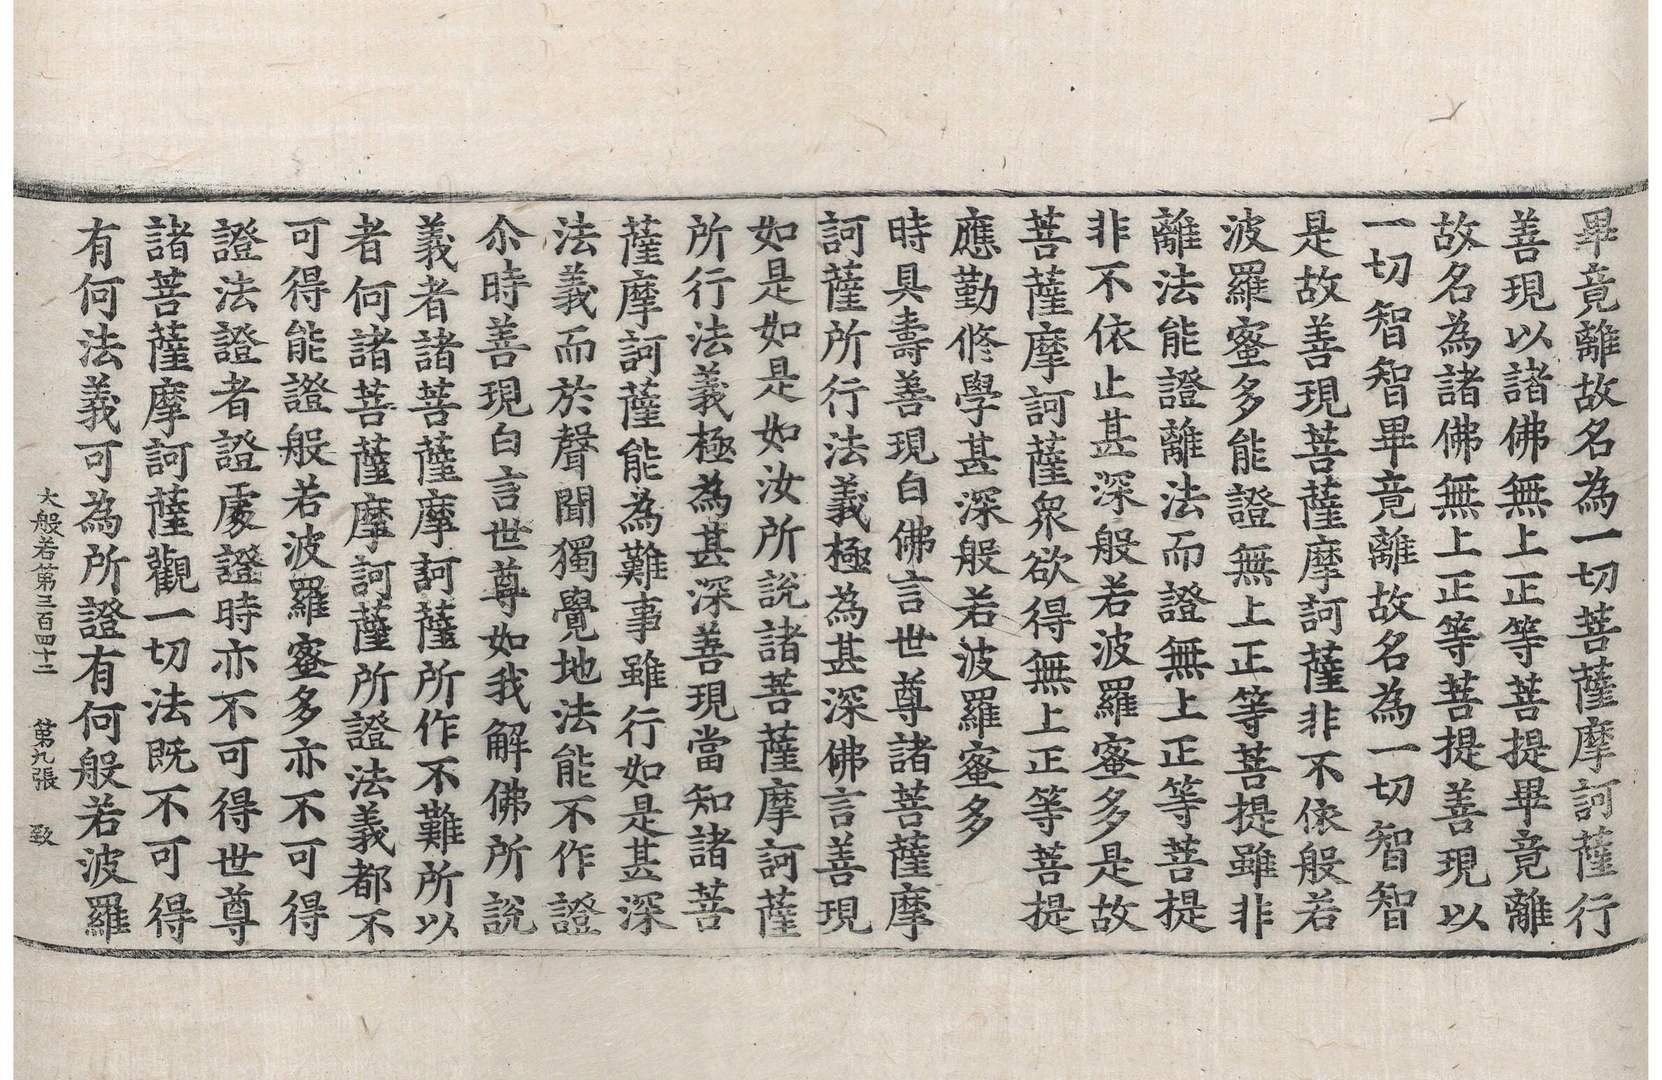 畢竟離故名為一切菩薩摩訶薩行
善現以諸佛無上正等菩提畢竟離
故名為諸佛無上正等菩提善現以
一切智智畢竟離故名為一切智智
是故善現菩薩摩訶薩非不依般若
波羅蜜多能證無上正等菩提雖非
離法能證離法而證無上正等菩提
非不依止甚深般若波羅蜜多是故
菩薩摩訶薩衆欲得無上正等菩提
應勤修學甚深般若波羅蜜多
時具壽善現白佛言世尊諸菩薩摩
訶薩所行法義極為甚深佛言善現
如是如是如汝所說諸菩薩摩訶薩
所行法義極為甚深善現當知諸菩
薩摩訶薩能為難事雖行如是甚深
法義而於聲聞獨覺地法能不作證
尒時善現白言世尊如我解佛所說
義者諸菩薩摩訶薩所作不難所以
者何諸菩薩摩訶薩所證法義都不
可得能證般若波羅蜜多亦不可得
證法證者證處證時亦不可得世尊
諸菩薩摩訶薩觀一切法既不可得
有何法義可為所證有何般若波羅
大般若第三百四十二 第九張 致